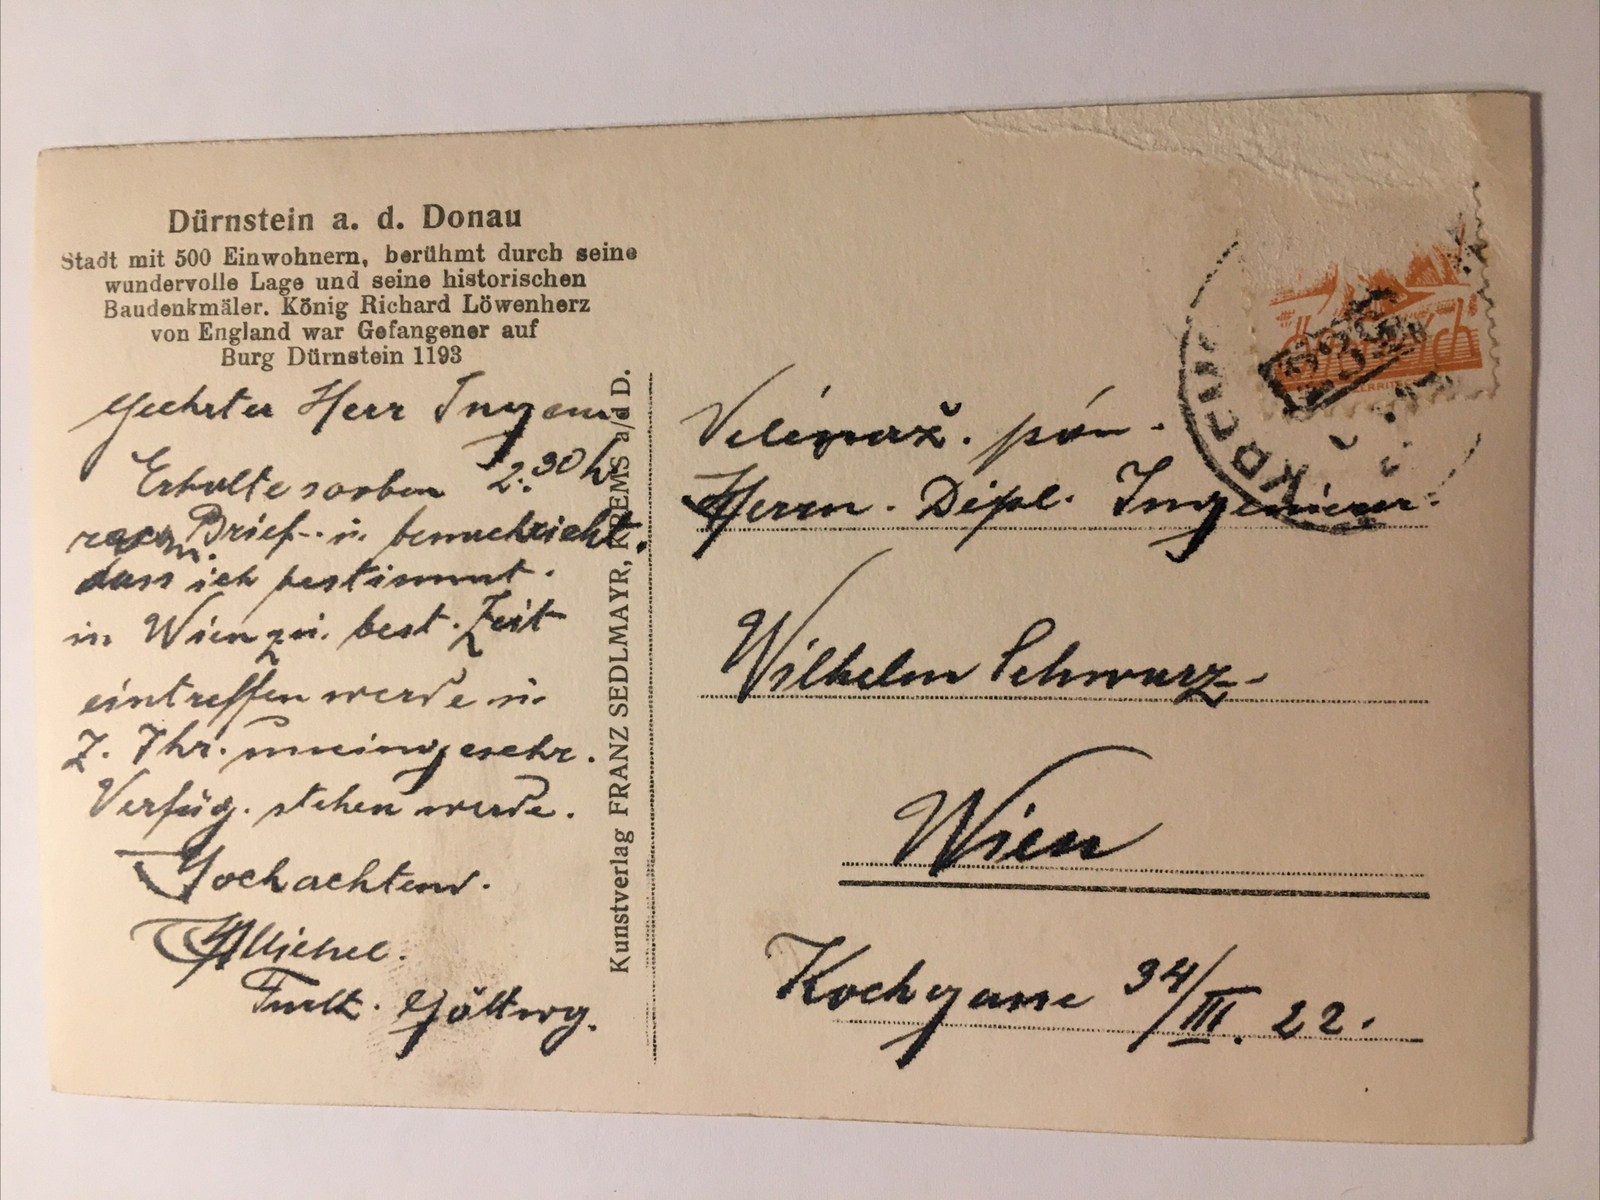 Dürnstein a. d. Donau
Stadt mit 500 Einwohnern, berühmt durch seine
wundervolle Lage und seine historischen
Baudenkmäler. König Richard Löwenherz
von England war Gefangener auf
Burg Dürnstein 1193
Geehrter Herr Ingen.
Erhalte soeben 2.30 h
Brief u. benachricht.
dass ich bestimmt.
in Wien zu. best. Zeit
eintreffen werde u.
z. Ihr. uneingeschr.
Verfüg. stehen werde.
Hochachtend.
Michel.
Furth. Göttwg.
Kunstverlag FRANZ SEDLMAYR, KREMS a/d D.
Velevaž. pán.
Herrn. Dipl. Ingenieur.
Wilhelm Schwarz
Wien
Kochgasse 34/III. 22.